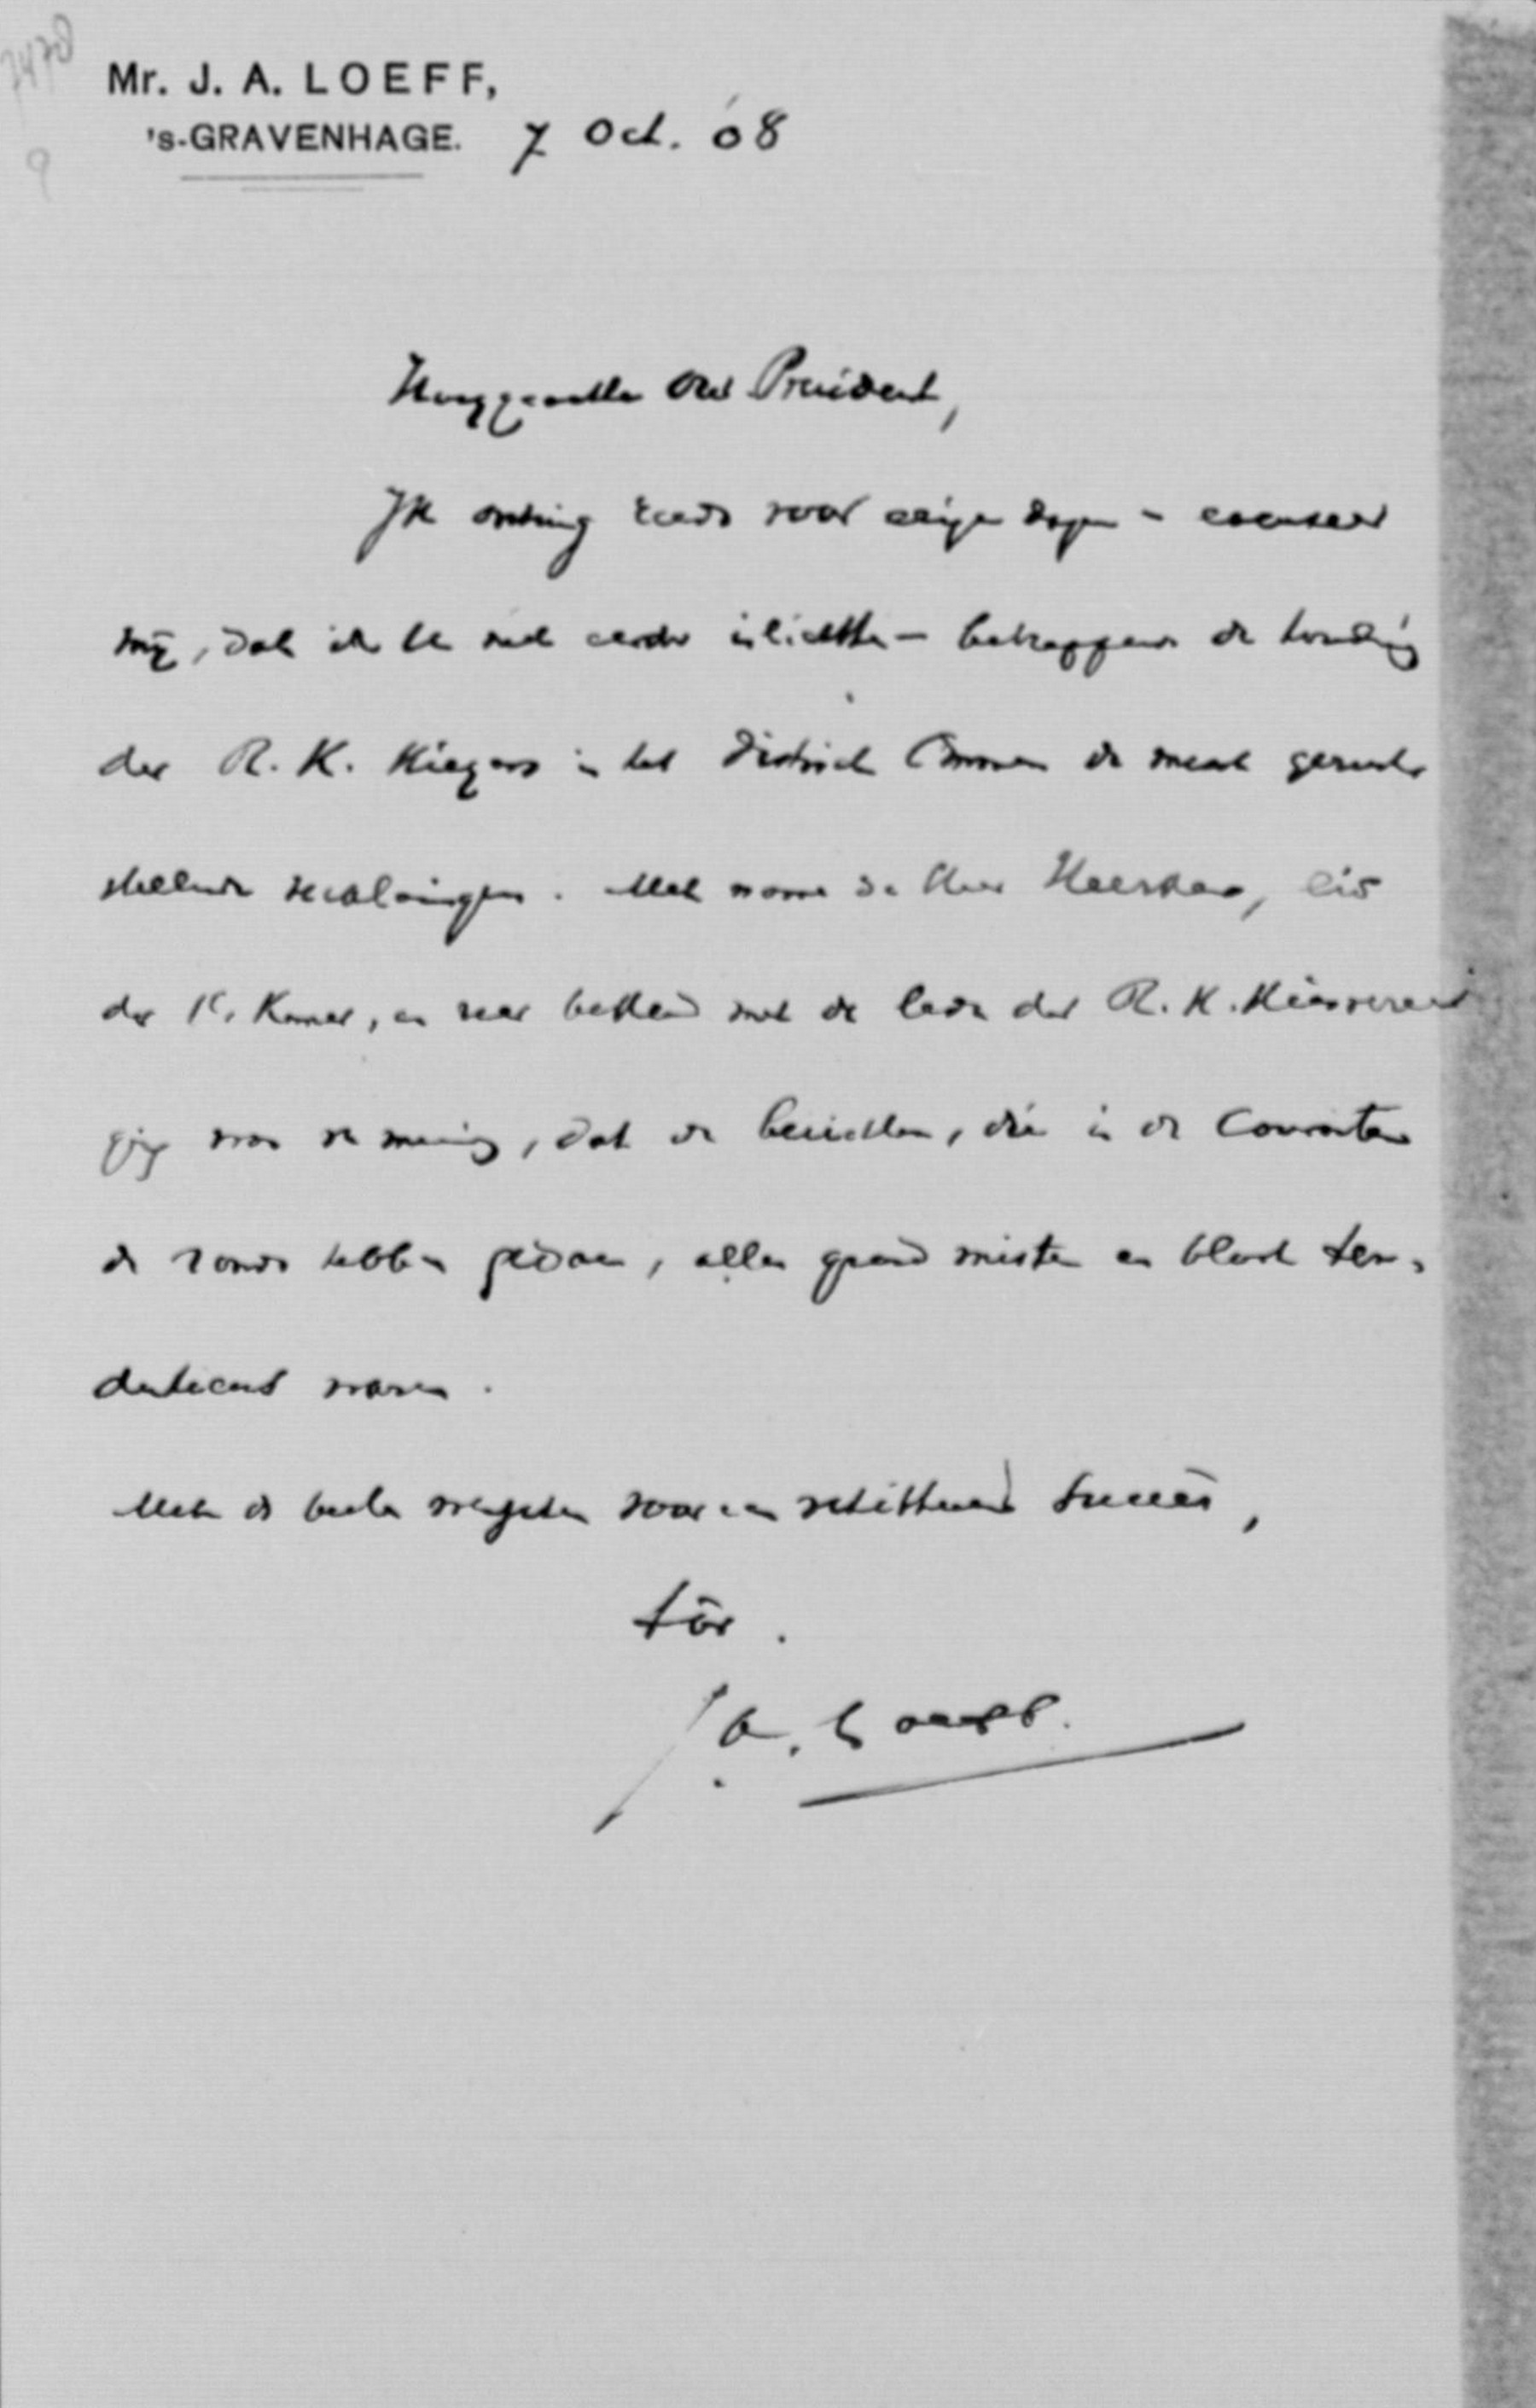 7470
9
Mr. J. A. LOEFF,
's-GRAVENHAGE. 7 Oct. '08
Hooggeachte Oud President,
Ik ontving reeds voor eenige dagen - excuseer
mij, dat ik U niet eerder inlichtte - betreffende de houding
der R. K. Kiezers in het district Ommen de meest gerust
stellende verklaringen. Met name de Heer Heerkens, lid
der 1e Kamer, en zeer bekend met de leden der R. K. Kiesvereen
was de meening, dat de berichten, die in de Couranten
de ronde hebben gedaan, allen grond misten en bloot ten-
dentieus waren.
Met de beste wenschen voor een schitterend Succes,
tàv.
J. A. Loeff.